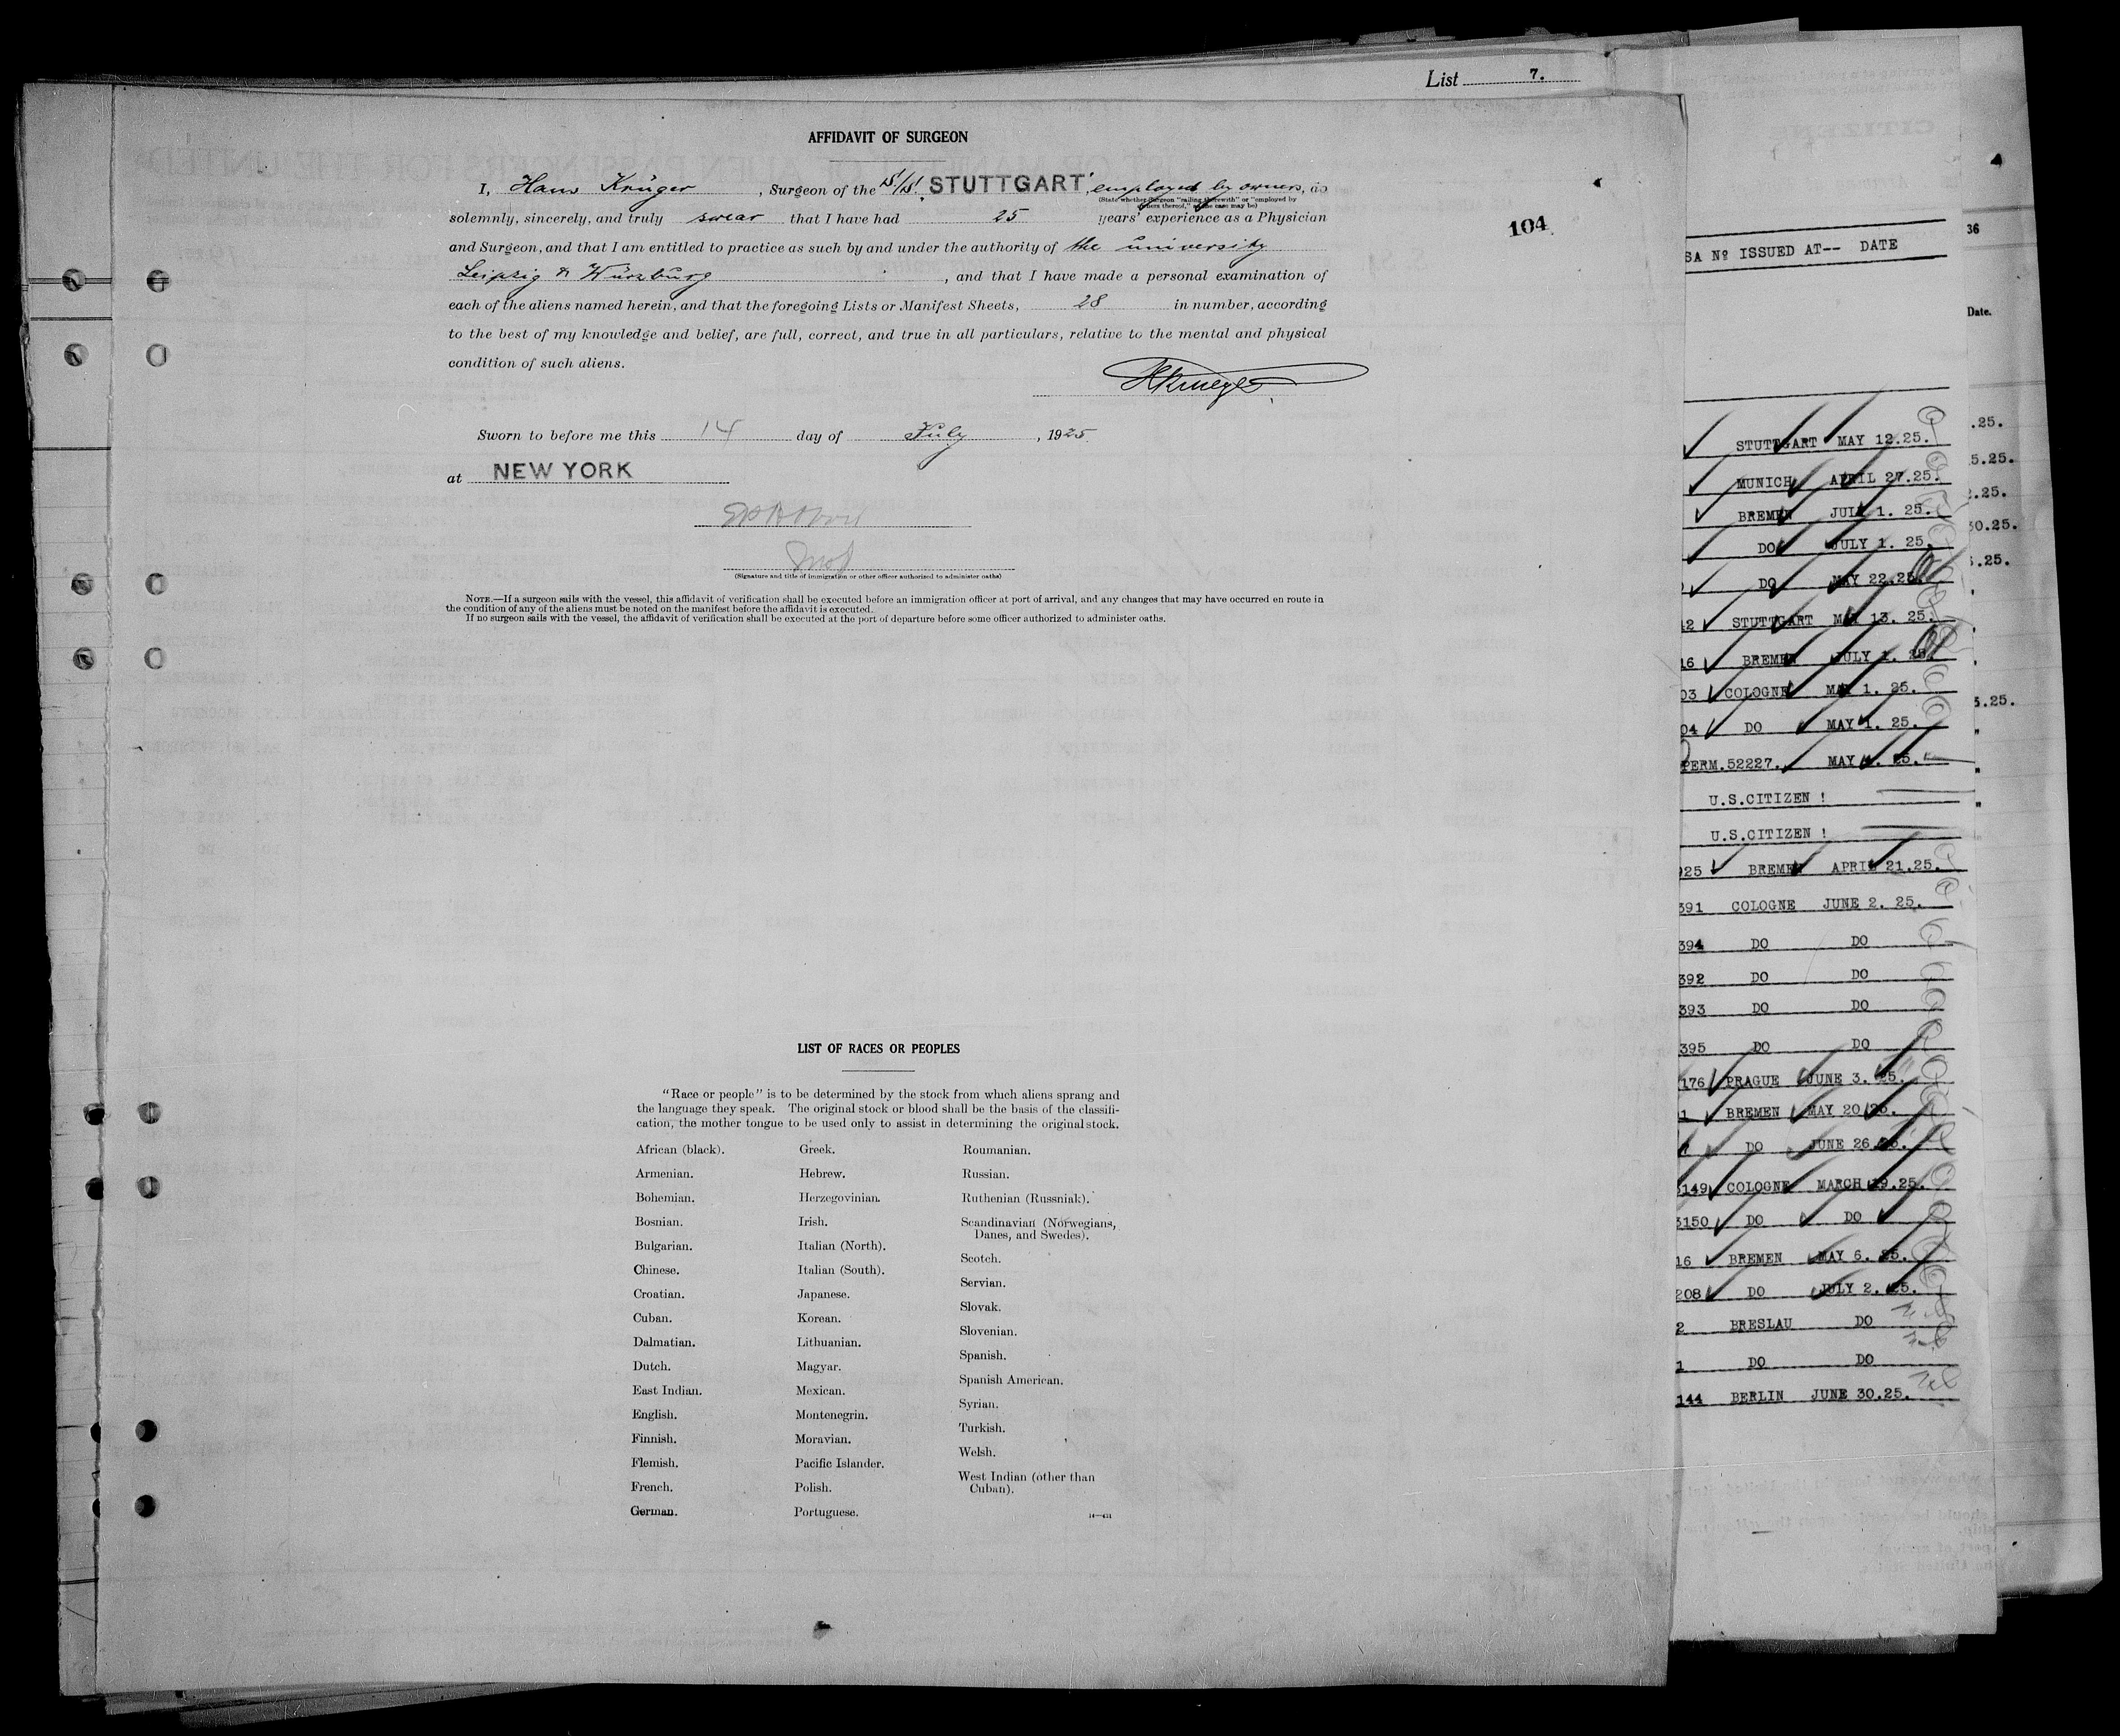 List 7.
AFFIDAVIT OF SURGEON
I, Hans Krüger, Surgeon of the S/S. "STUTTGART" employed by owners, do
(State whether Surgeon "sailing therewith" or "employed by
owners thereof," as the case may be)
solemnly, sincerely, and truly swear that I have had 25 years' experience as a Physician
104
and Surgeon, and that I am entitled to practice as such by and under the authority of the university
Leipzig & Würzburg, and that I have made a personal examination of
each of the aliens named herein, and that the foregoing Lists or Manifest Sheets, 28 in number, according
to the best of my knowledge and belief, are full, correct, and true in all particulars, relative to the mental and physical
condition of such aliens.
HKrueger
Sworn to before me this 14 day of July, 1925.
at NEW YORK
(Signature and title of immigration or other officer authorized to administer oaths)
NOTE.—If a surgeon sails with the vessel, this affidavit of verification shall be executed before an immigration officer at port of arrival, and any changes that may have occurred en route in
the condition of any of the aliens must be noted on the manifest before the affidavit is executed.
If no surgeon sails with the vessel, the affidavit of verification shall be executed at the port of departure before some officer authorized to administer oaths.
LIST OF RACES OR PEOPLES
"Race or people" is to be determined by the stock from which aliens sprang and
the language they speak. The original stock or blood shall be the basis of the classifi-
cation, the mother tongue to be used only to assist in determining the original stock.
African (black).
Armenian.
Bohemian.
Bosnian.
Bulgarian.
Chinese.
Croatian.
Cuban.
Dalmatian.
Dutch.
East Indian.
English.
Finnish.
Flemish.
French.
German.
Greek.
Hebrew.
Herzegovinian.
Irish.
Italian (North).
Italian (South).
Japanese.
Korean.
Lithuanian.
Magyar.
Mexican.
Montenegrin.
Moravian.
Pacific Islander.
Polish.
Portuguese.
Roumanian.
Russian.
Ruthenian (Russniak).
Scandinavian (Norwegians,
Danes, and Swedes).
Scotch.
Servian.
Slovak.
Slovenian.
Spanish.
Spanish American.
Syrian.
Turkish.
Welsh.
West Indian (other than
Cuban).
SA Nº ISSUED AT-- DATE
STUTTGART MAY 12.25.
MUNICH APRIL 27.25.
BREMEN JULY 1. 25.
DO JULY 1. 25.
DO MAY 22.25.
12 STUTTGART MAY 13. 25.
16 BREMEN JULY 1. 25.
03 COLOGNE MAY 1. 25.
04 DO MAY 1. 25.
PERM.52227. MAY 25.
U.S.CITIZEN !
U.S.CITIZEN !
925 BREMEN APRIL 21.25.
391 COLOGNE JUNE 2. 25.
394 DO DO
392 DO DO
393 DO DO
395 DO DO
176 PRAGUE JUNE 3. 25.
1 BREMEN MAY 20.25.
7 DO JUNE 26.25.
3149 COLOGNE MARCH 19.25.
3150 DO DO
16 BREMEN MAY 6. 25.
208 DO JULY 2. 25.
2 BRESLAU DO
1 DO DO
144 BERLIN JUNE 30.25.
36
Date.
.25.
5.25.
2.25.
30.25.
.25.
3.25.
"
"
"